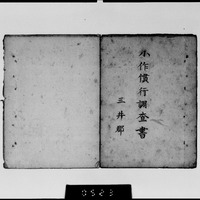 小作慣行調査書
三井郡
0523